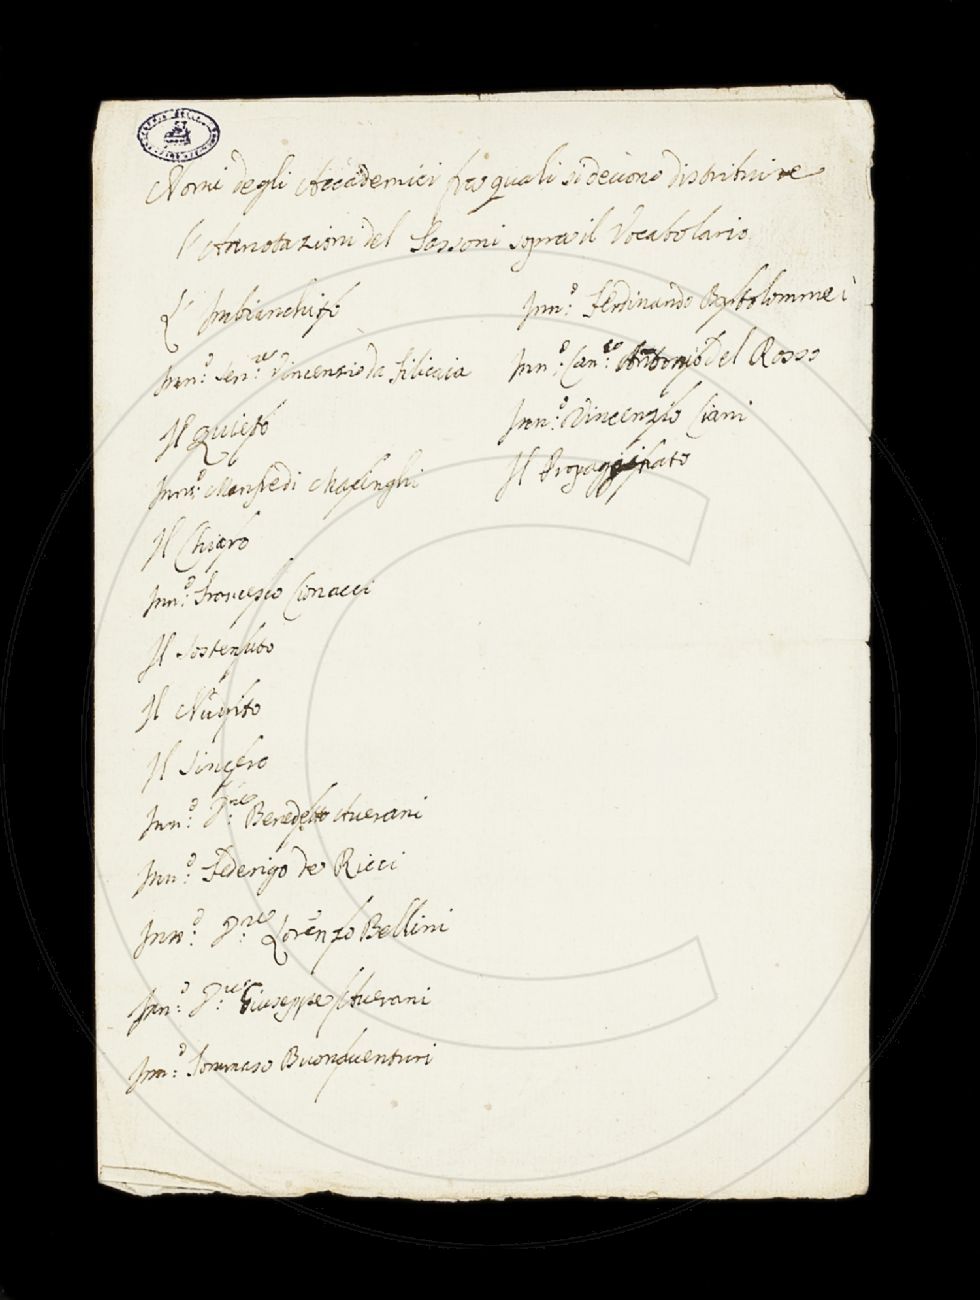 Nomi degli Accademici fra quali si deuono distribuire
l'Annotazioni del Sassoni sopra il Vocabolario
L' Imbianchito
Inn:º Sen:re Vincenzio da Filicaia
Il Quieto
Inn:º Manfredi Macinghi
Il Chiaro
Inn:º Francesco Cionacci
Il Sostenuto
Il
Il Sincero
Inn:º D:re Benedetto Auerani
Inn:º Federigo de Ricci
Inn:º D:re Lorenzo Bellini
Inn:º D:re Giuseppe Auerani
Inn:º Tommaso Buonauenturi
Inn:º Ferdinando Bartolommei
Inn:º Can:co Antonio Del Rosso
Inn:º Vincenzio Ciani
Il Propagginato